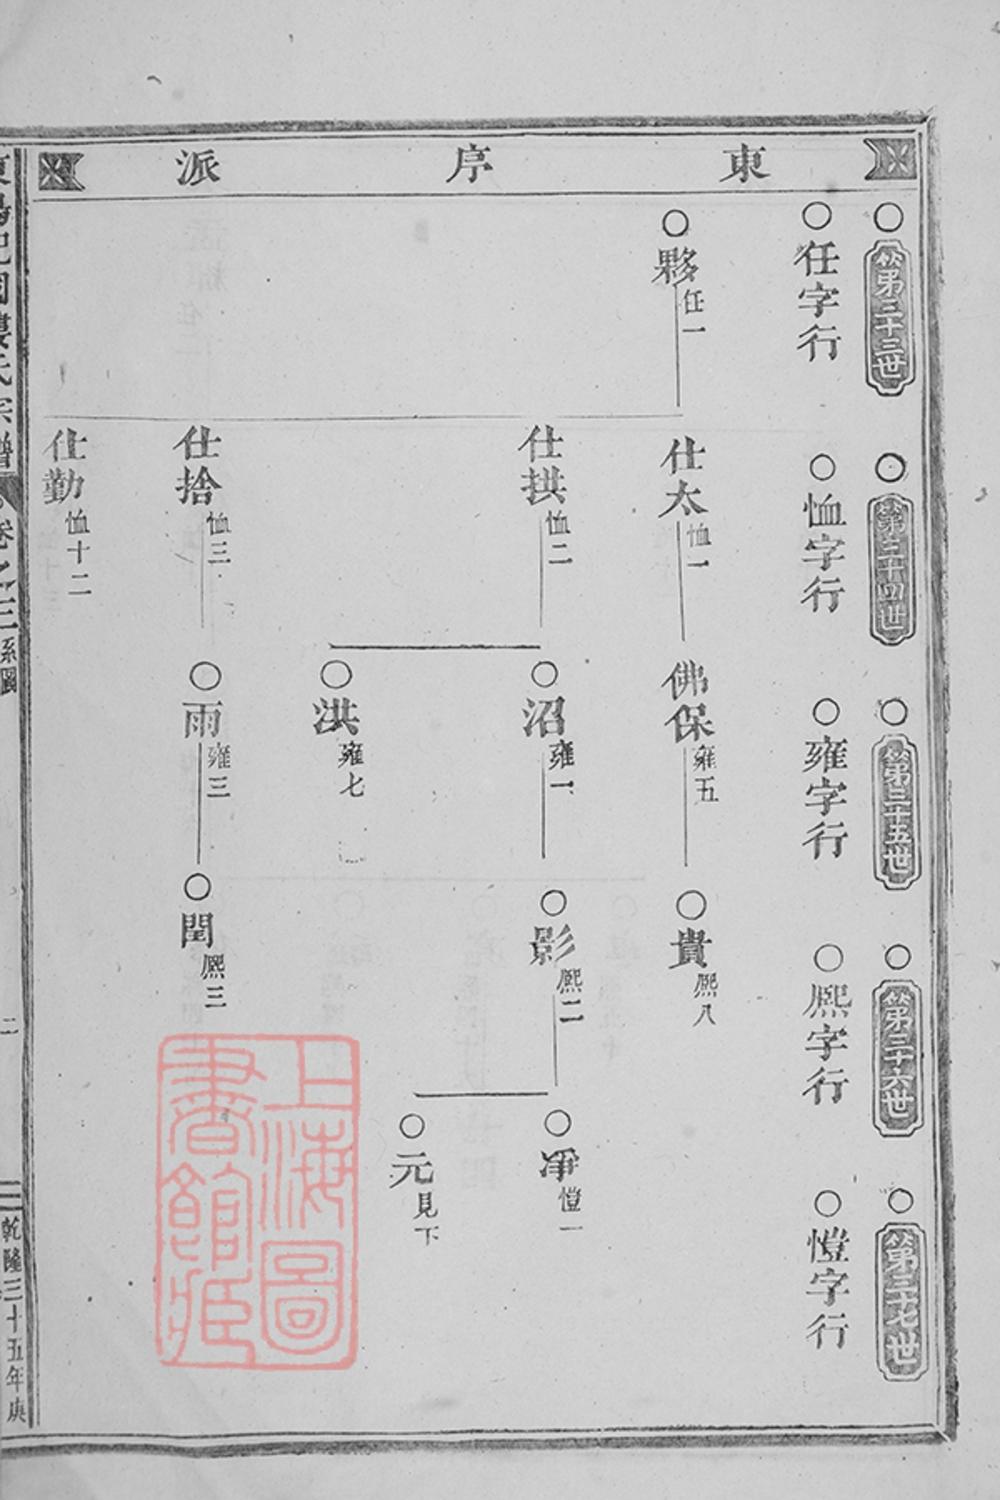 東序派
第三十三世
任字行
夥任一
第三十四世
恤字行
仕太恤一
仕拱恤二
仕捨恤三
仕勤恤十二
第三十五世
雍字行
佛保雍五
沼雍一
洪雍七
雨雍三
第三十六世
熈字行
貴熈八
影熈二
閏熈三
第三十七世
愷字行
愷一
元見下
上海圖書館藏
宗譜
卷之三
系圖
二
乾隆三十五年庚